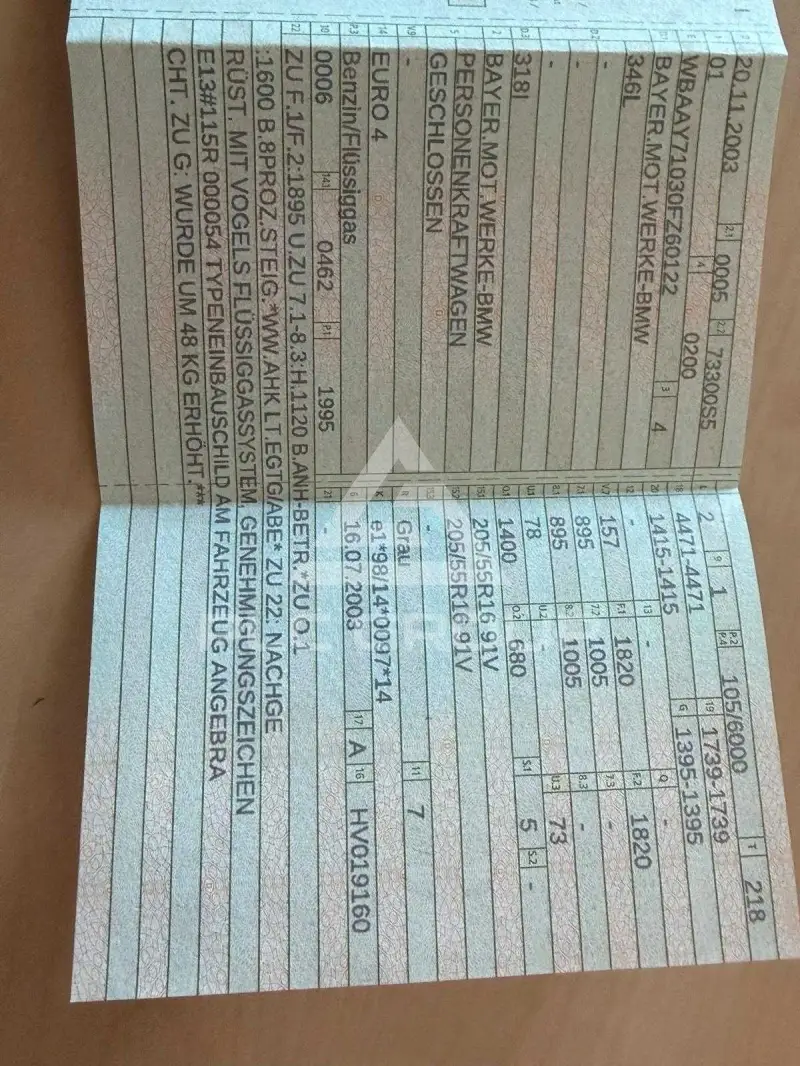 20.11.2003 2.1 0005 2.2 73300S5
01 4 0200
WBAAY71030FZ60122 3 4
BAYER.MOT.WERKE-BMW
346L
-
-
-
318I
BAYER.MOT.WERKE-BMW
PERSONENKRAFTWAGEN
GESCHLOSSEN
-
EURO 4
Benzin/Flüssiggas
0006 14.1 0462 P.1 1995
2 9 1 P.2 P.4 105/6000 T 218
18 4471-4471 19 1739-1739
20 1415-1415 G 1395-1395
12 - 13 - Q -
V.7 157 F.1 1820 F.2 1820
7.1 895 7.2 1005 7.3 -
8.1 895 8.2 1005 8.3 -
U.1 78 U.2 - U.3 73
O.1 1400 O.2 680 S.1 5 S.2 -
15.1 205/55R16 91V
15.2 205/55R16 91V
15.3 -
R Grau 11 7
K e1*98/14*0097*14
6 16.07.2003 17 A 16 HV019160
21 -
22 ZU F.1/F.2:1895 U.ZU 7.1-8.3:H.1120 B.ANH-BETR.*ZU O.1
:1600 B.8PROZ.STEIG.*WW.AHK LT.EGTG/ABE* ZU 22: NACHGE
RÜST. MIT VOGELS FLÜSSIGGASSYSTEM, GENEHMIGUNGSZEICHEN
E13#115R 000054 TYPENEINBAUSCHILD AM FAHRZEUG ANGEBRA
CHT. ZU G: WURDE UM 48 KG ERHÖHT.***